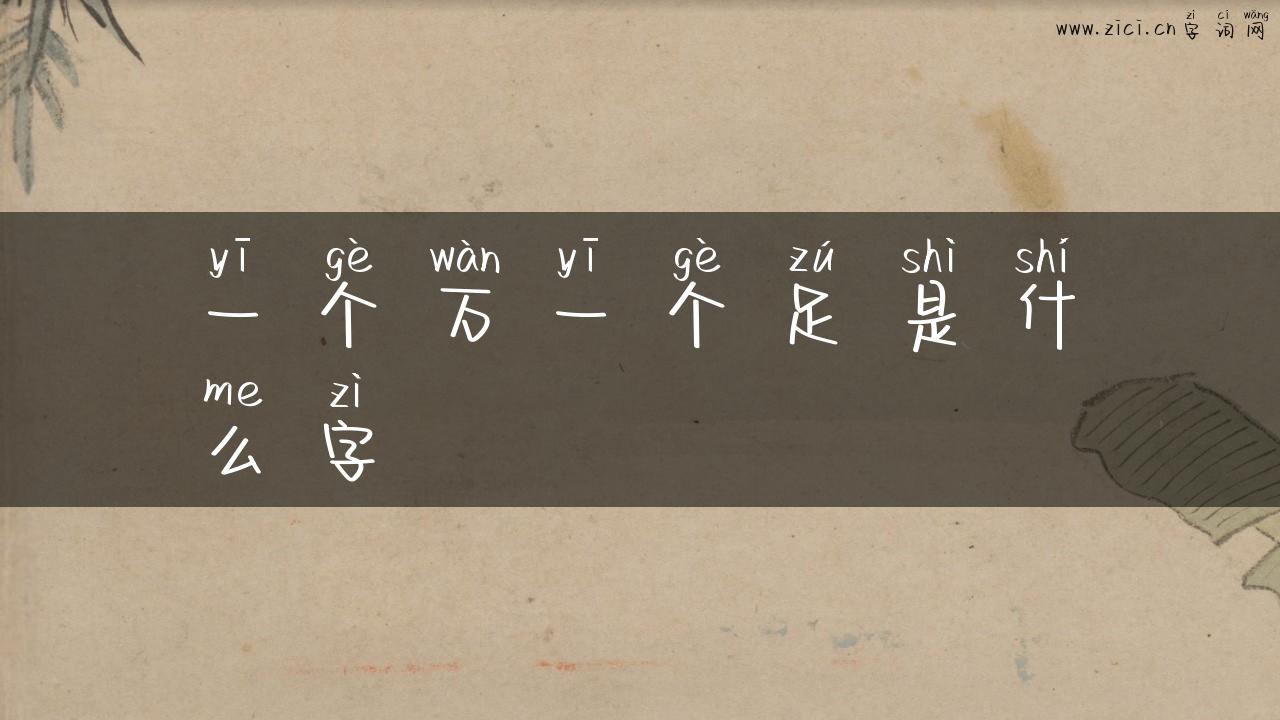 www.zici.cn 字词网
zì cí wǎng
yī gè wàn yī gè zú shì shí
一个万一个足是什
me zì
么字